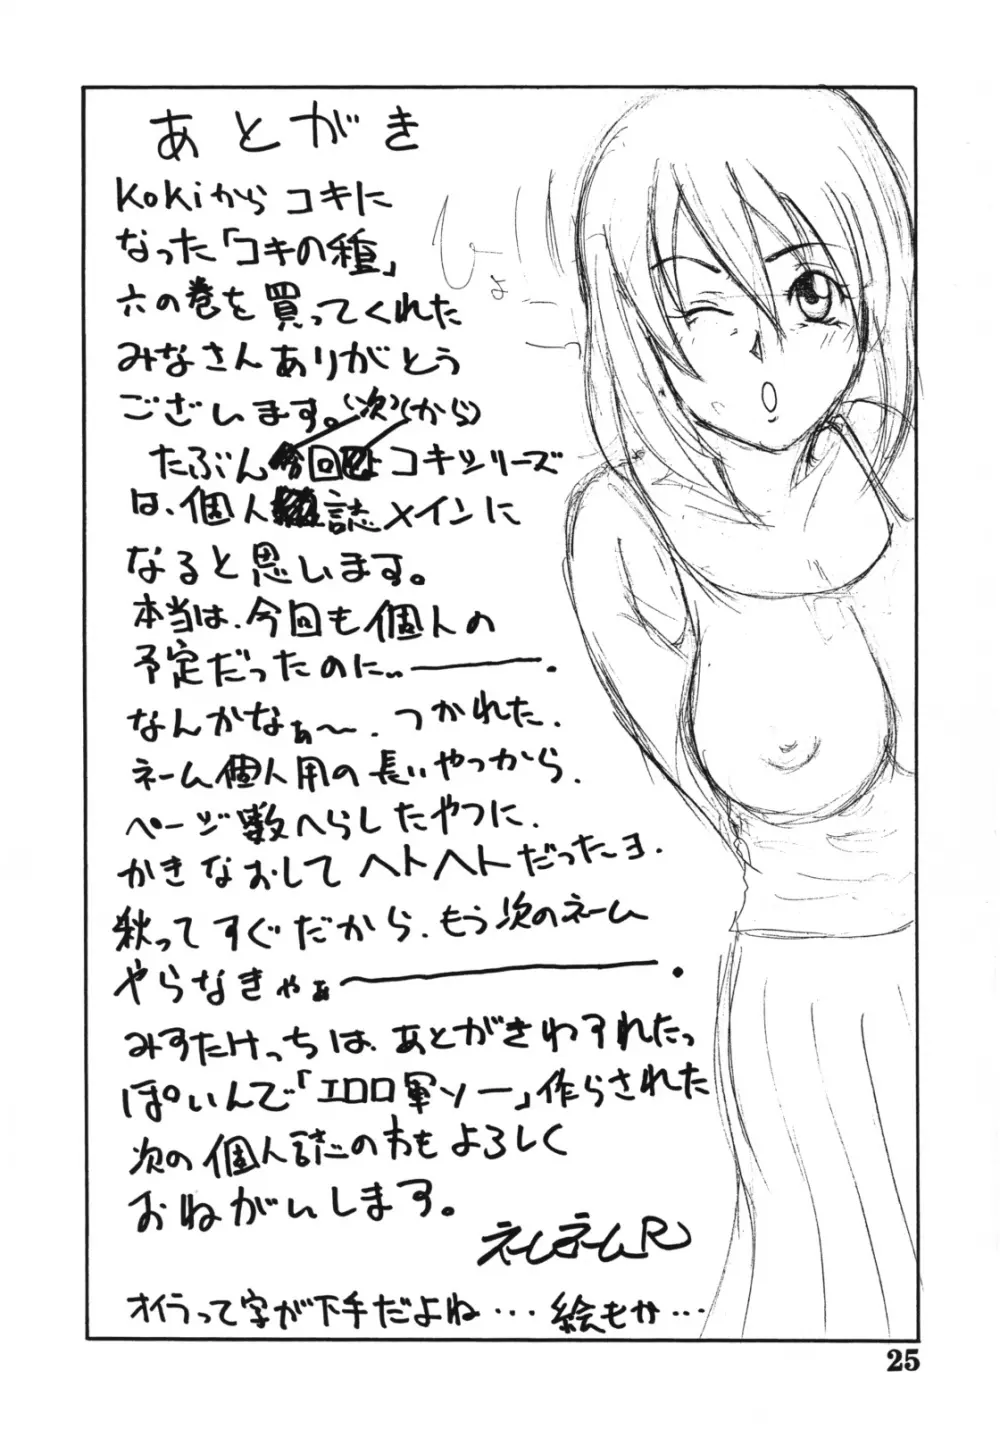 あとがき
Kokiから コキに
なった「コキの種」
六の巻を買ってくれた
みなさんありがとう
ございます。(次)(から)
たぶん今回 コキシリーズ
は、個人誌メインに
なると思います。
本当は、今回も個人の
予定だったのに、、――.
なんかなぁ〜.つかれた.
ネーム個人用の長いやつから.
ページ数へらしたやつに.
かきなおしてヘトヘトだったヨ.
秋ってすぐだから.もう次のネーム
やらなきゃぁ――.
みすたけっちは、あとがきわすれたっ
ぽいんで「エロロ軍ソー」作らされた
次の個人誌のわもよろしく
おねがいします。
ネームネームR
オイラって字が下手だよね・・・絵もか・・・
ひょ
25